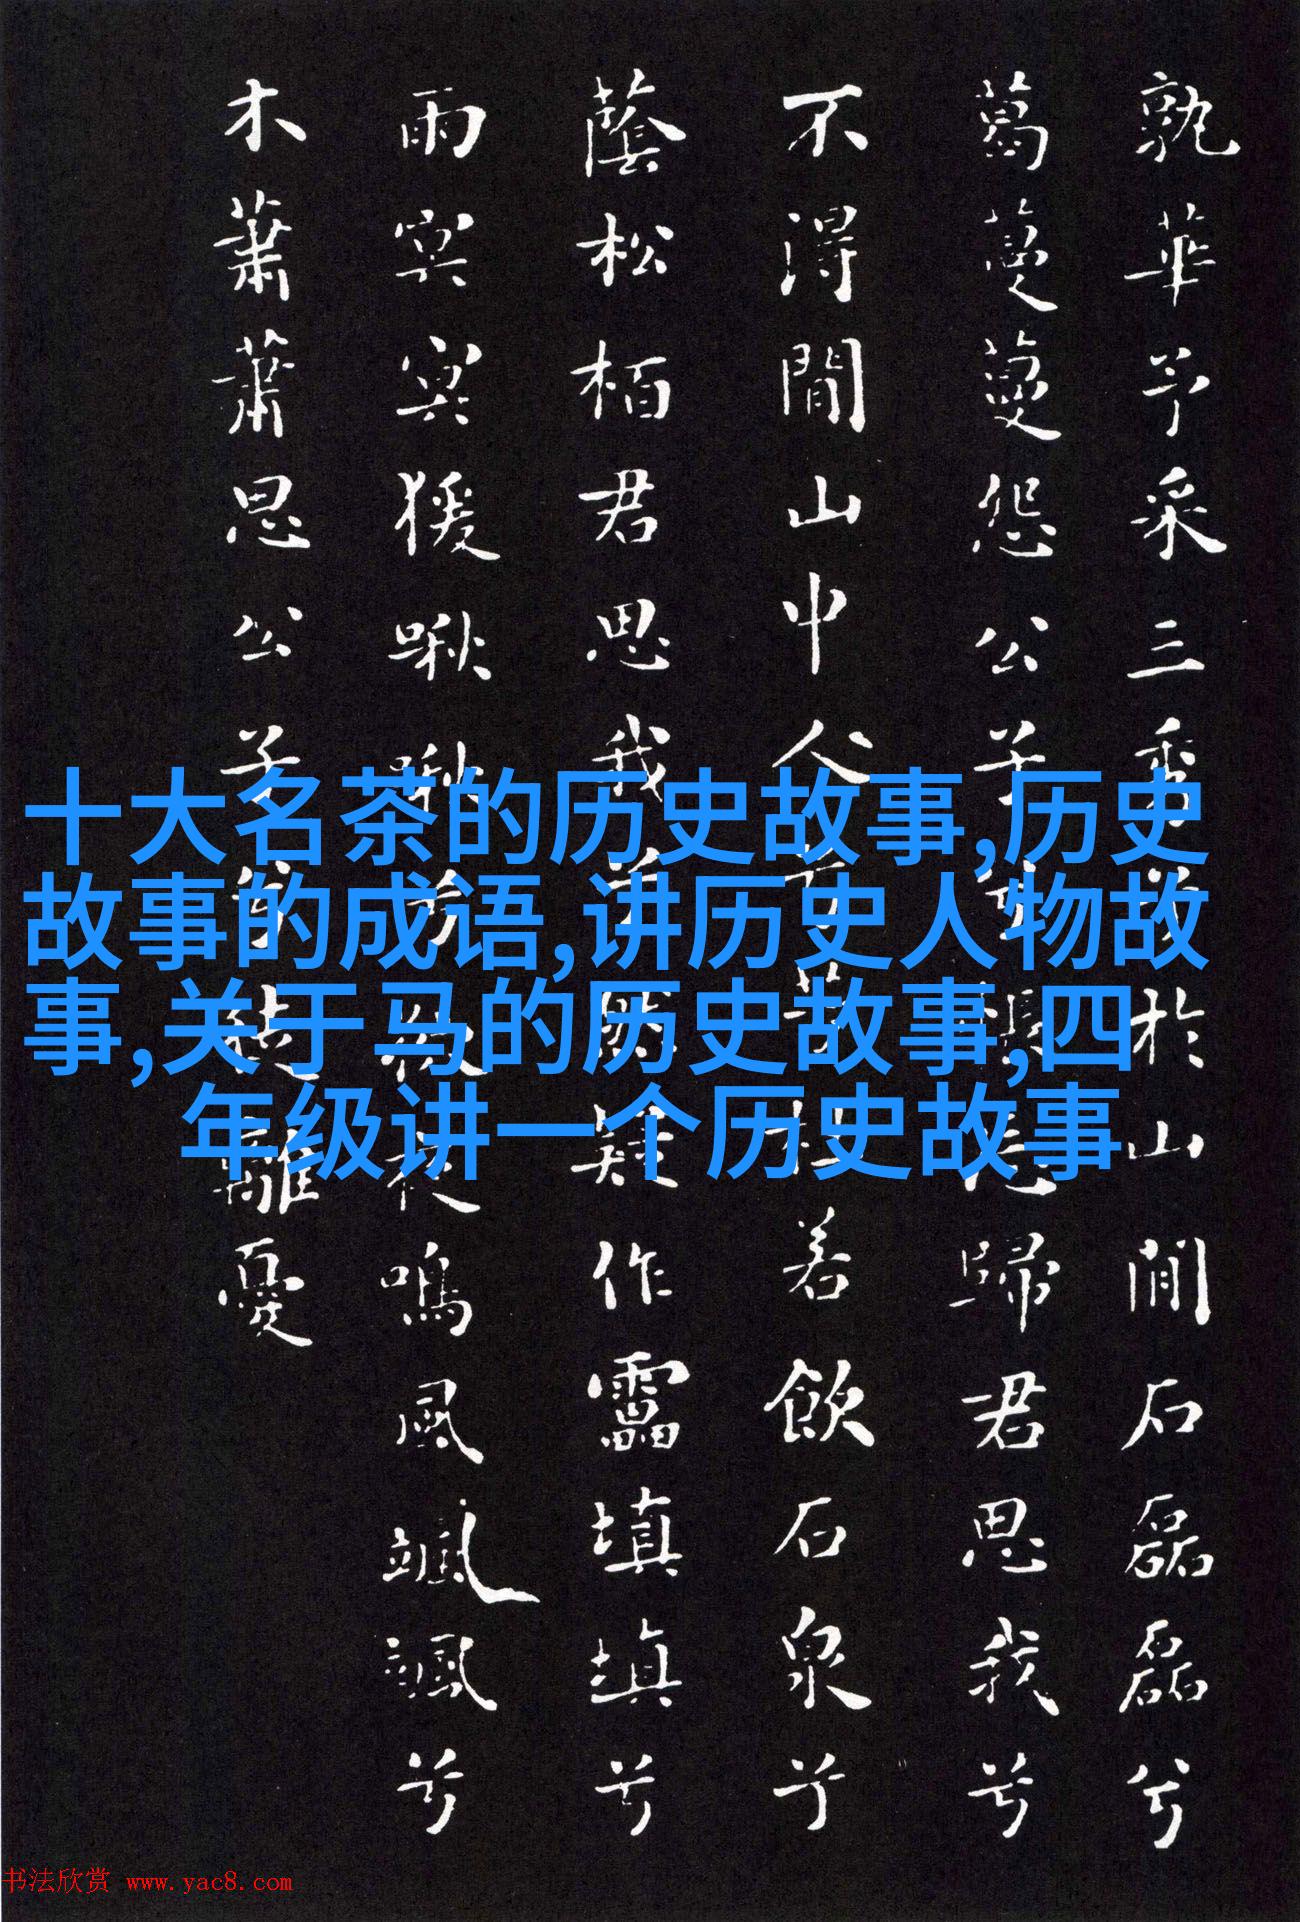 孰華予采三秀兮於山閒石磊磊兮
葛蔓蔓怨公子兮悵忘歸君思我兮
不得間山中人兮芳杜若飲石泉兮
蔭松栢君思我兮然疑作靁填填兮
雨冥冥猨啾啾兮狖夜鳴風颯颯兮
木蕭蕭思公子兮徒離憂
十大名茶的历史故事,历史
故事的成语,讲历史人物故
事,关于马的历史故事,四
年级讲一个历史故事
书法欣赏 www.yac8.com